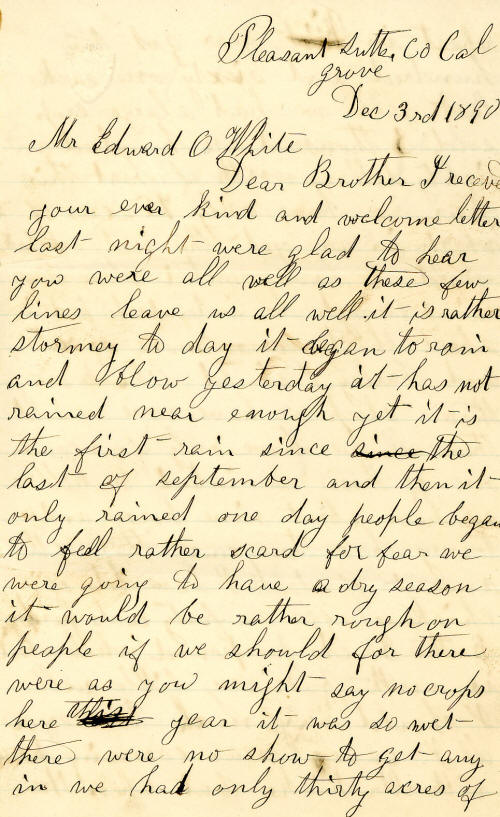 Pleasant Sutter Co Cal
grove
Dec 3rd 1890
Mr Edward O White
Dear Brother I receve
your ever kind and welcome letter
last night were glad to hear
you were all well as these few
lines leave us all well. it is rather
stormey to day it began to rain
and blow yesterday it has not
rained near enough yet it is
the first rain since since the
last of september and then it
only rained one day people began
to feel rather scard for fear we
were going to have a dry season
it would be rather rough on
people if we should for there
were as you might say no crops
here this year it was so wet
there were no show to get any
in we had only thirty acres of